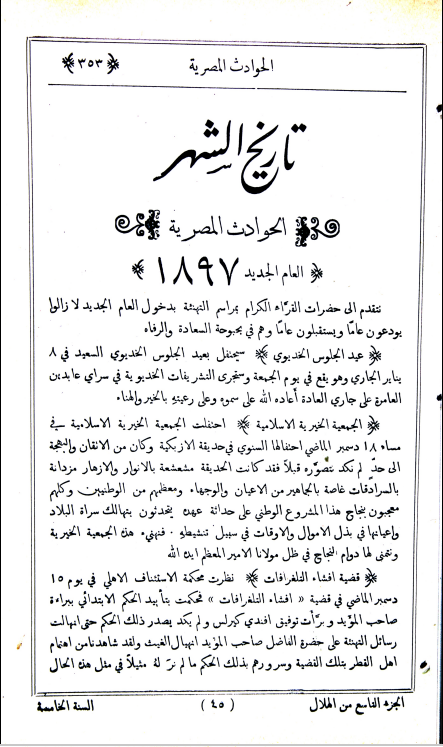 الحوادث المصرية
﴿ ٣٥٣ ﴾
تاريخ الشهر
الحوادث المصرية
﴿ العام الجديد ١٨٩٧ ﴾
نتقدم الى حضرات القرّاء الكرام بمراسم التهنئة بدخول العام الجديد لا زالوا
يودعون عامًا ويستقبلون عامًا وهم في بحبوحة السعادة والرفاه
﴿ عيد الجلوس الخديوي ﴾ سيحتفل بعيد الجلوس الخديوي السعيد في ٨
يناير الجاري وهو يقع في يوم الجمعة وستجرى التشريفات الخديوية في سراي عابدين
العامرة على جاري العادة أعاده الله على سموه وعلى رعيته بالخير والهناء.
﴿ الجمعية الخيرية الاسلامية ﴾ احتفلت الجمعية الخيرية الاسلامية في
مساء ١٨ دسمبر الماضي احتفالها السنوي في حديقة الازبكية وكان من الاتقان والبهجة
الى حدّ لم نكد نتصوّره قبلاً فقد كانت الحديقة مشعشعة بالانوار والازهار مزدانة
بالسرادقات غاصة بالجماهير من الاعيان والوجهاء . ومعظمهم من الوطنيين وكلهم
معجبون بنجاح هذا المشروع الوطني على حداثة عهده يتحدثون بتهالك سراة البلاد
واعيانها في بذل الاموال والاوقات في سبيل تنشيطه . فنهنيء هذه الجمعية الخيرية
ونتمنى لها دوام النجاح في ظل مولانا الامير المعظم ايده الله
﴿ قضية افشاء التلغرافات ﴾ نظرت محكمة الاستئناف الاهلي في يوم ١٥
دسمبر الماضي في قضية « افشاء التلغرافات » فحكمت بتأييد الحكم الابتدائي ببراءة
صاحب المؤيد وبرّأت توفيق افندي كيرلس ولم يكد يصدر ذلك الحكم حتى انهالت
رسائل التهنئة على حضرة الفاضل صاحب المؤيد انهيال الغيث ولقد شاهدنا من اهتمام
اهل القطر بتلك القضية وسرورهم بذلك الحكم ما لم نرَ لهُ مثيلاً في مثل هذه الحال
الجزء التاسع من الهلال
( ٤٥ )
السنة الخامسة